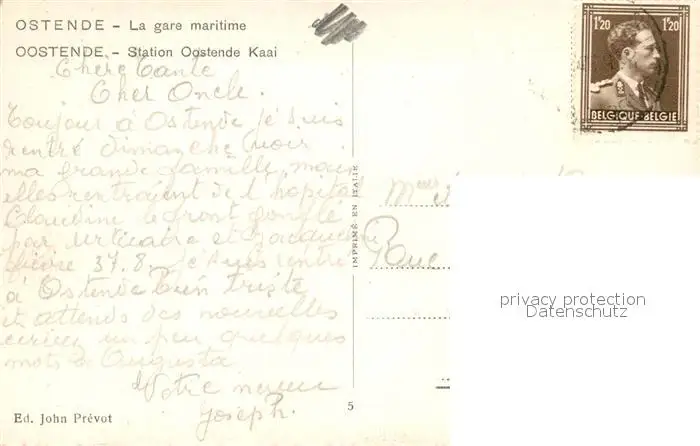 OSTENDE. - La gare maritime
OOSTENDE. - Station Oostende Kaai
Chère Tante
Cher Oncle.
Toujour à Ostende je suis
rentré dimanche voir
ma grande famille, mais
elles rentraient de l'hopital
Claudine le front gonflé
par urticaire et
encore 37.8. je suis rentré
à Ostende bien triste
et attends des nouvelles
écrivez un peu quelques
mots à Augusta
Votre neveu
Joseph.
Ed. John Prévot
5
IMPRIMÉ EN ITALIE
1F20 1F20
BELGIQUE-BELGIË
Rue
privacy protection
Datenschutz